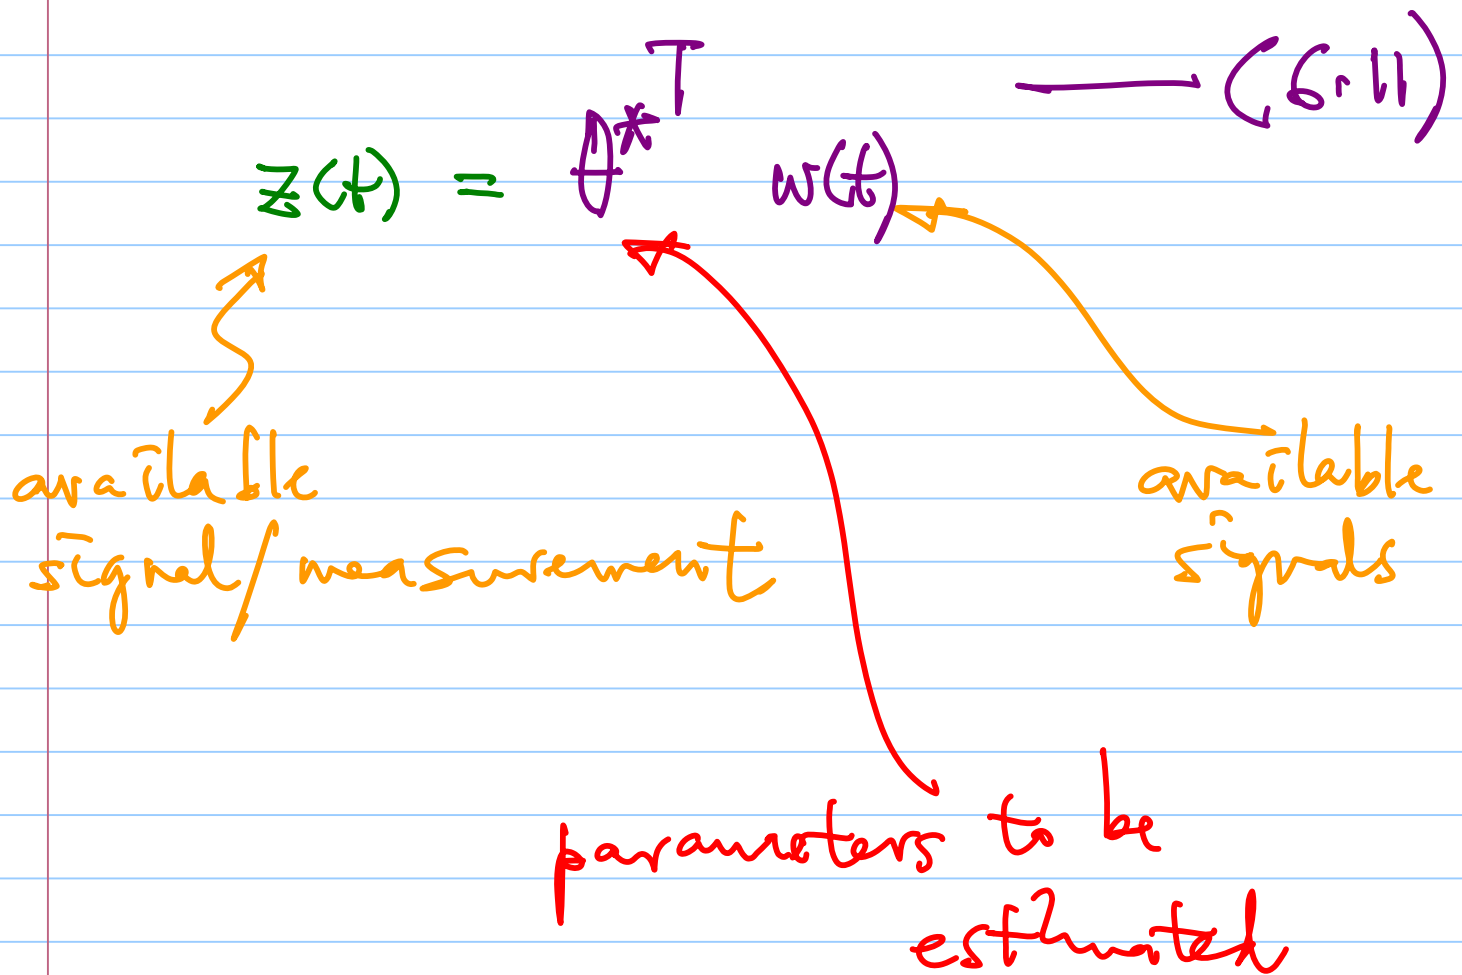 z(t) = θ*ᵀ w(t) — (6.11)
available signal/measurement
available signals
parameters to be estimated